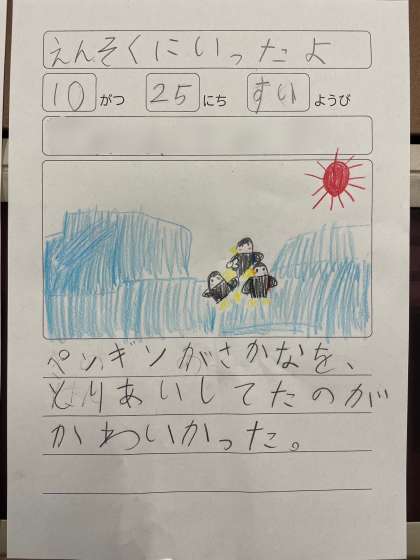 えんそくにいったよ
10がつ 25にち すいようび
ペンギンがさかなを、
とりあいしてたのが
かわいかった。